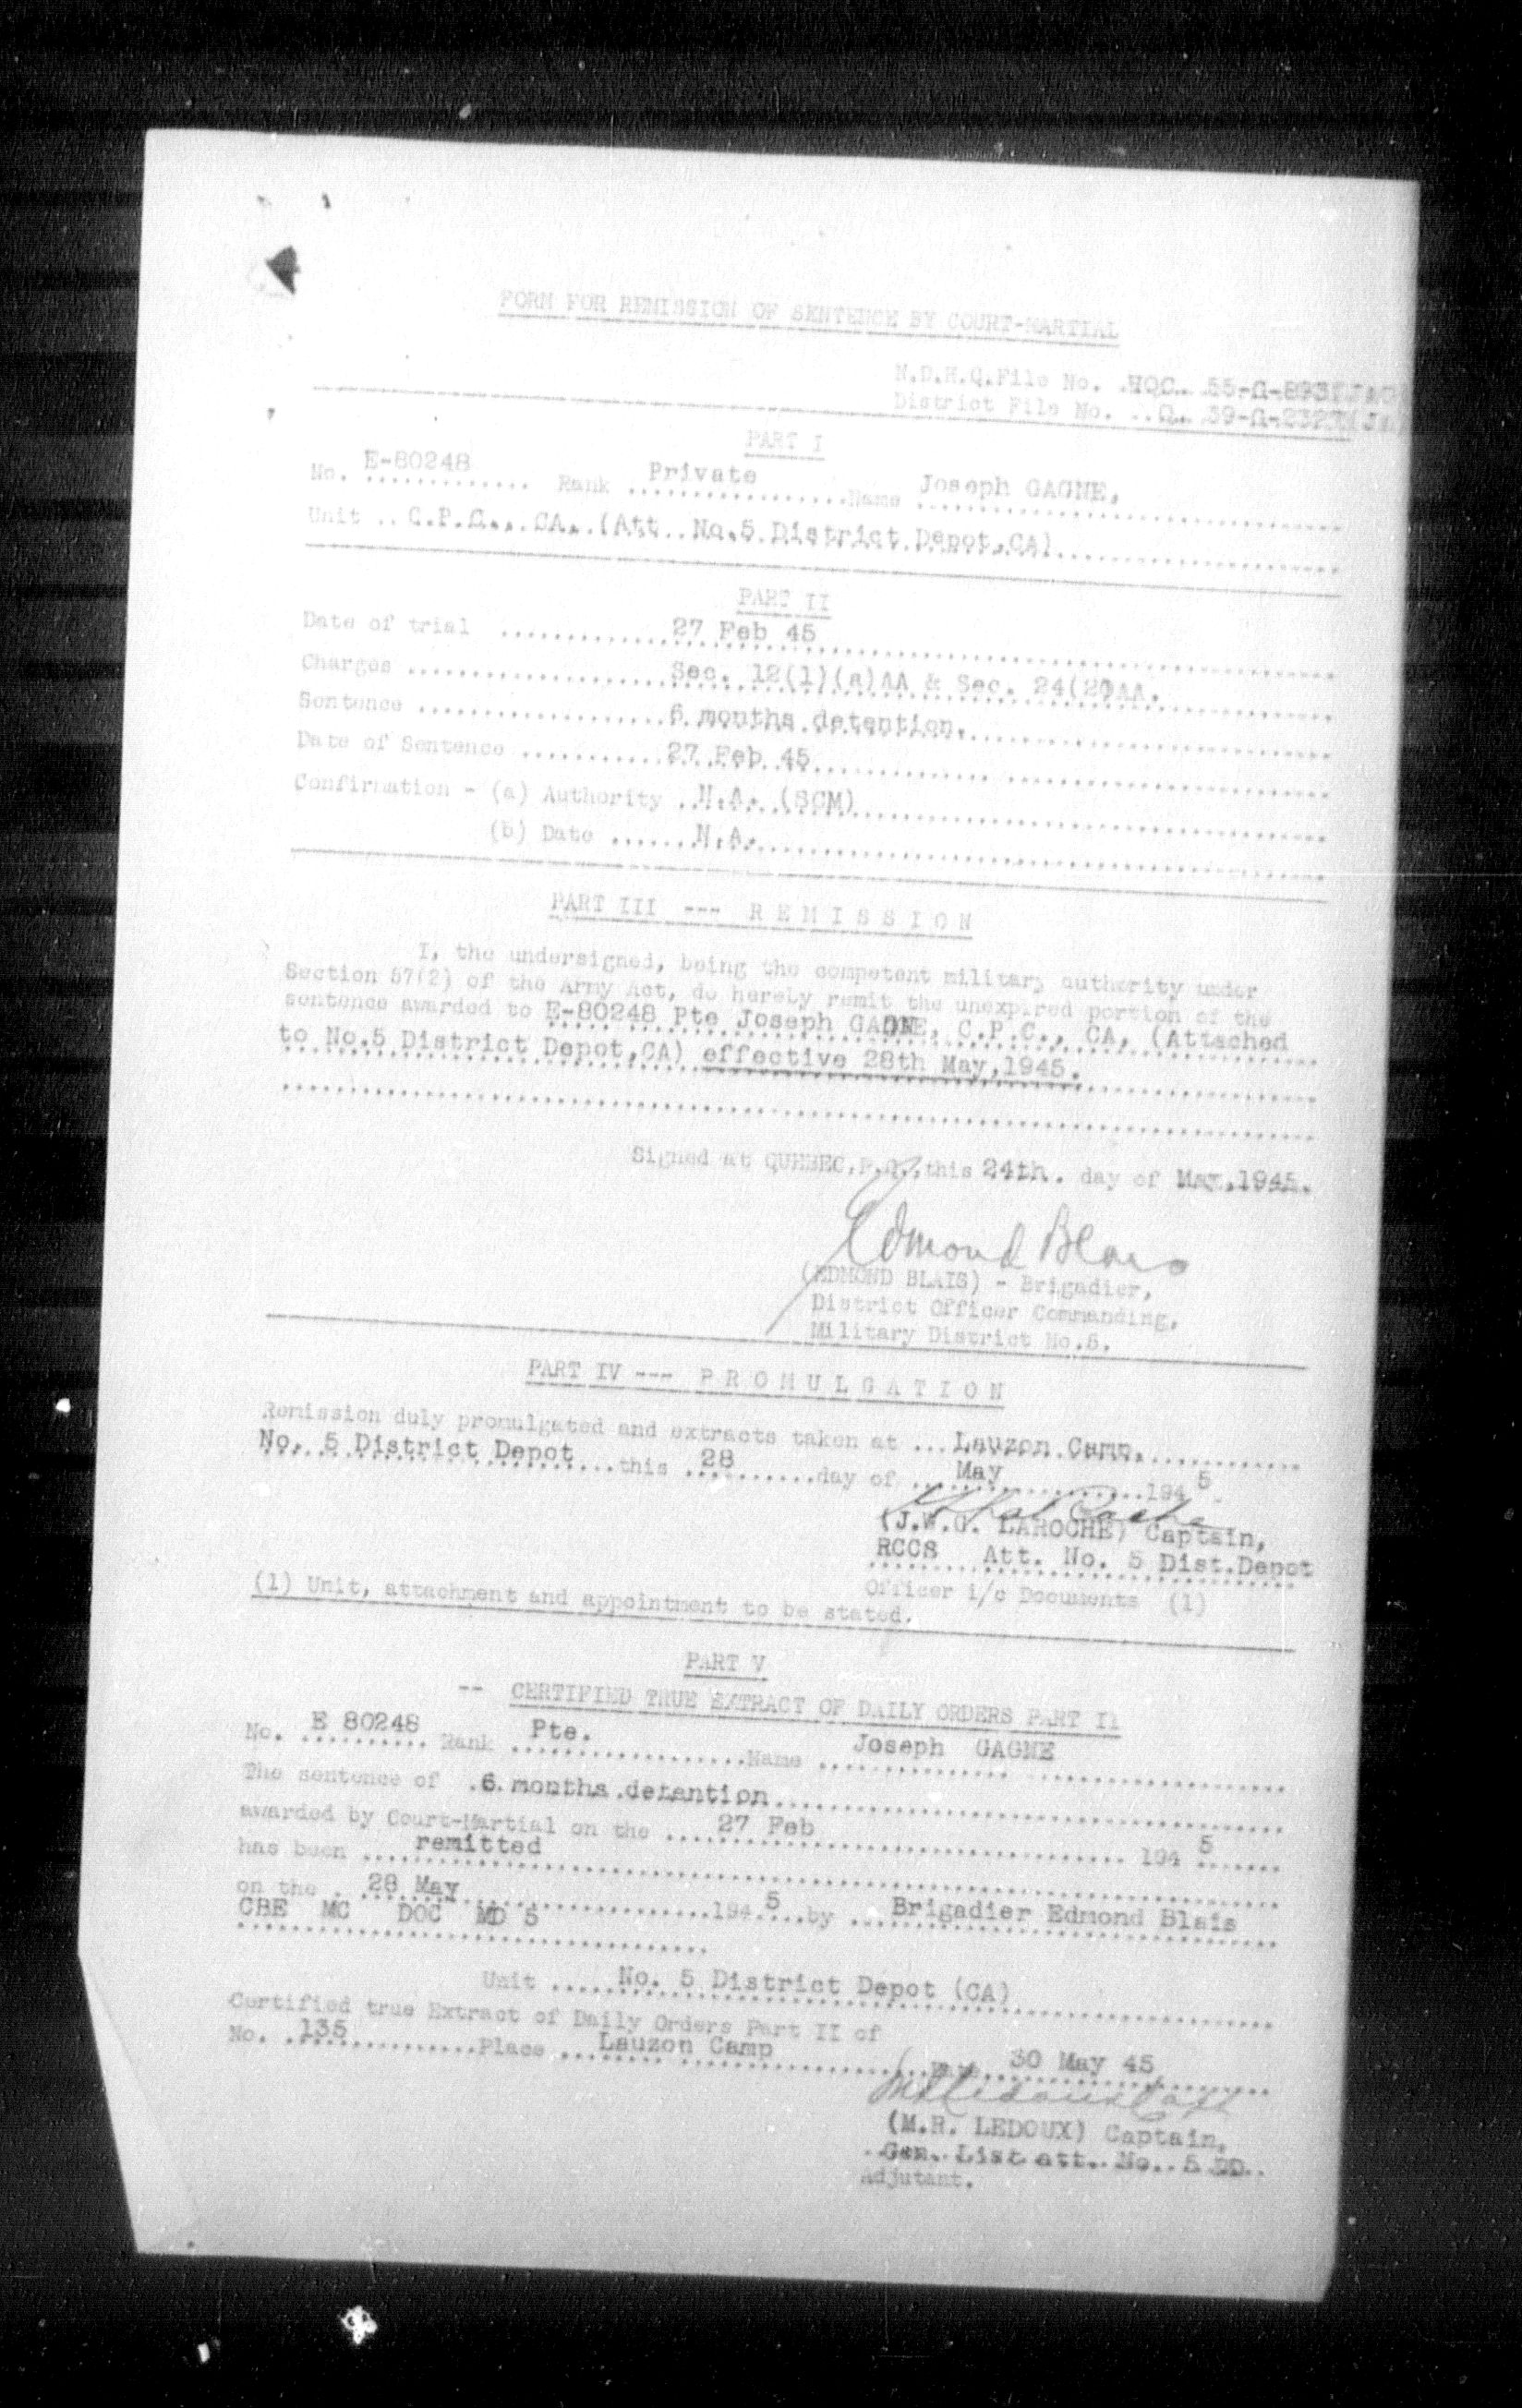 FORM FOR REMISSION OF SENTENCE BY COURT-MARTIAL
N.D.H.Q.File No. .HQC. 55-G-
District File No. ..Q. 39-G-
PART I
No. E-80248 Rank Private Name Joseph GAGNE,
Unit .. C.P.C... CA. (Att. No.5 District Depot,CA)
PART II
Date of trial 27 Feb 45
Charges Sec. 12(1)(a)AA & Sec. 24(2)AA.
Sentence 6 months detention.
Date of Sentence 27 Feb 45
Confirmation - (a) Authority N.A. (SCM)
(b) Date N.A.
PART III --- R E M I S S I O N
I, the undersigned, being the competent military authority under
Section 57(2) of the Army Act, do hereby remit the unexpired portion of the
sentence awarded to E-80248 Pte Joseph GAGNE, C.P.C., CA, (Attached
to No.5 District Depot,CA) effective 28th May,1945.
Signed at QUEBEC,P.Q.,this 24th. day of May,1945.
Edmond Blais
(EDMOND BLAIS) - Brigadier,
District Officer Commanding,
Military District No.5.
PART IV --- P R O M U L G A T I O N
Remission duly promulgated and extracts taken at ... Lauzon Camp,
No. 5 District Depot this 28 day of May 194 5.
(J.W.G. LAROCHE) Captain,
RCCS Att. No. 5 Dist.Depot
Officer i/c Documents (1)
(1) Unit, attachment and appointment to be stated.
PART V
-- CERTIFIED TRUE EXTRACT OF DAILY ORDERS PART II
No. E 80248 Rank Pte. Name Joseph GAGNE
The sentence of 6 months detention
awarded by Court-Martial on the 27 Feb 194 5
has been remitted
on the 28 May 194 5 by Brigadier Edmond Blais
CBE MC DOC MD 5
Unit No. 5 District Depot (CA)
Certified true Extract of Daily Orders Part II of
No. 135 Place Lauzon Camp Date 30 May 45
(M.R. LEDOUX) Captain,
Gen. List att. No. 5 DD
Adjutant.